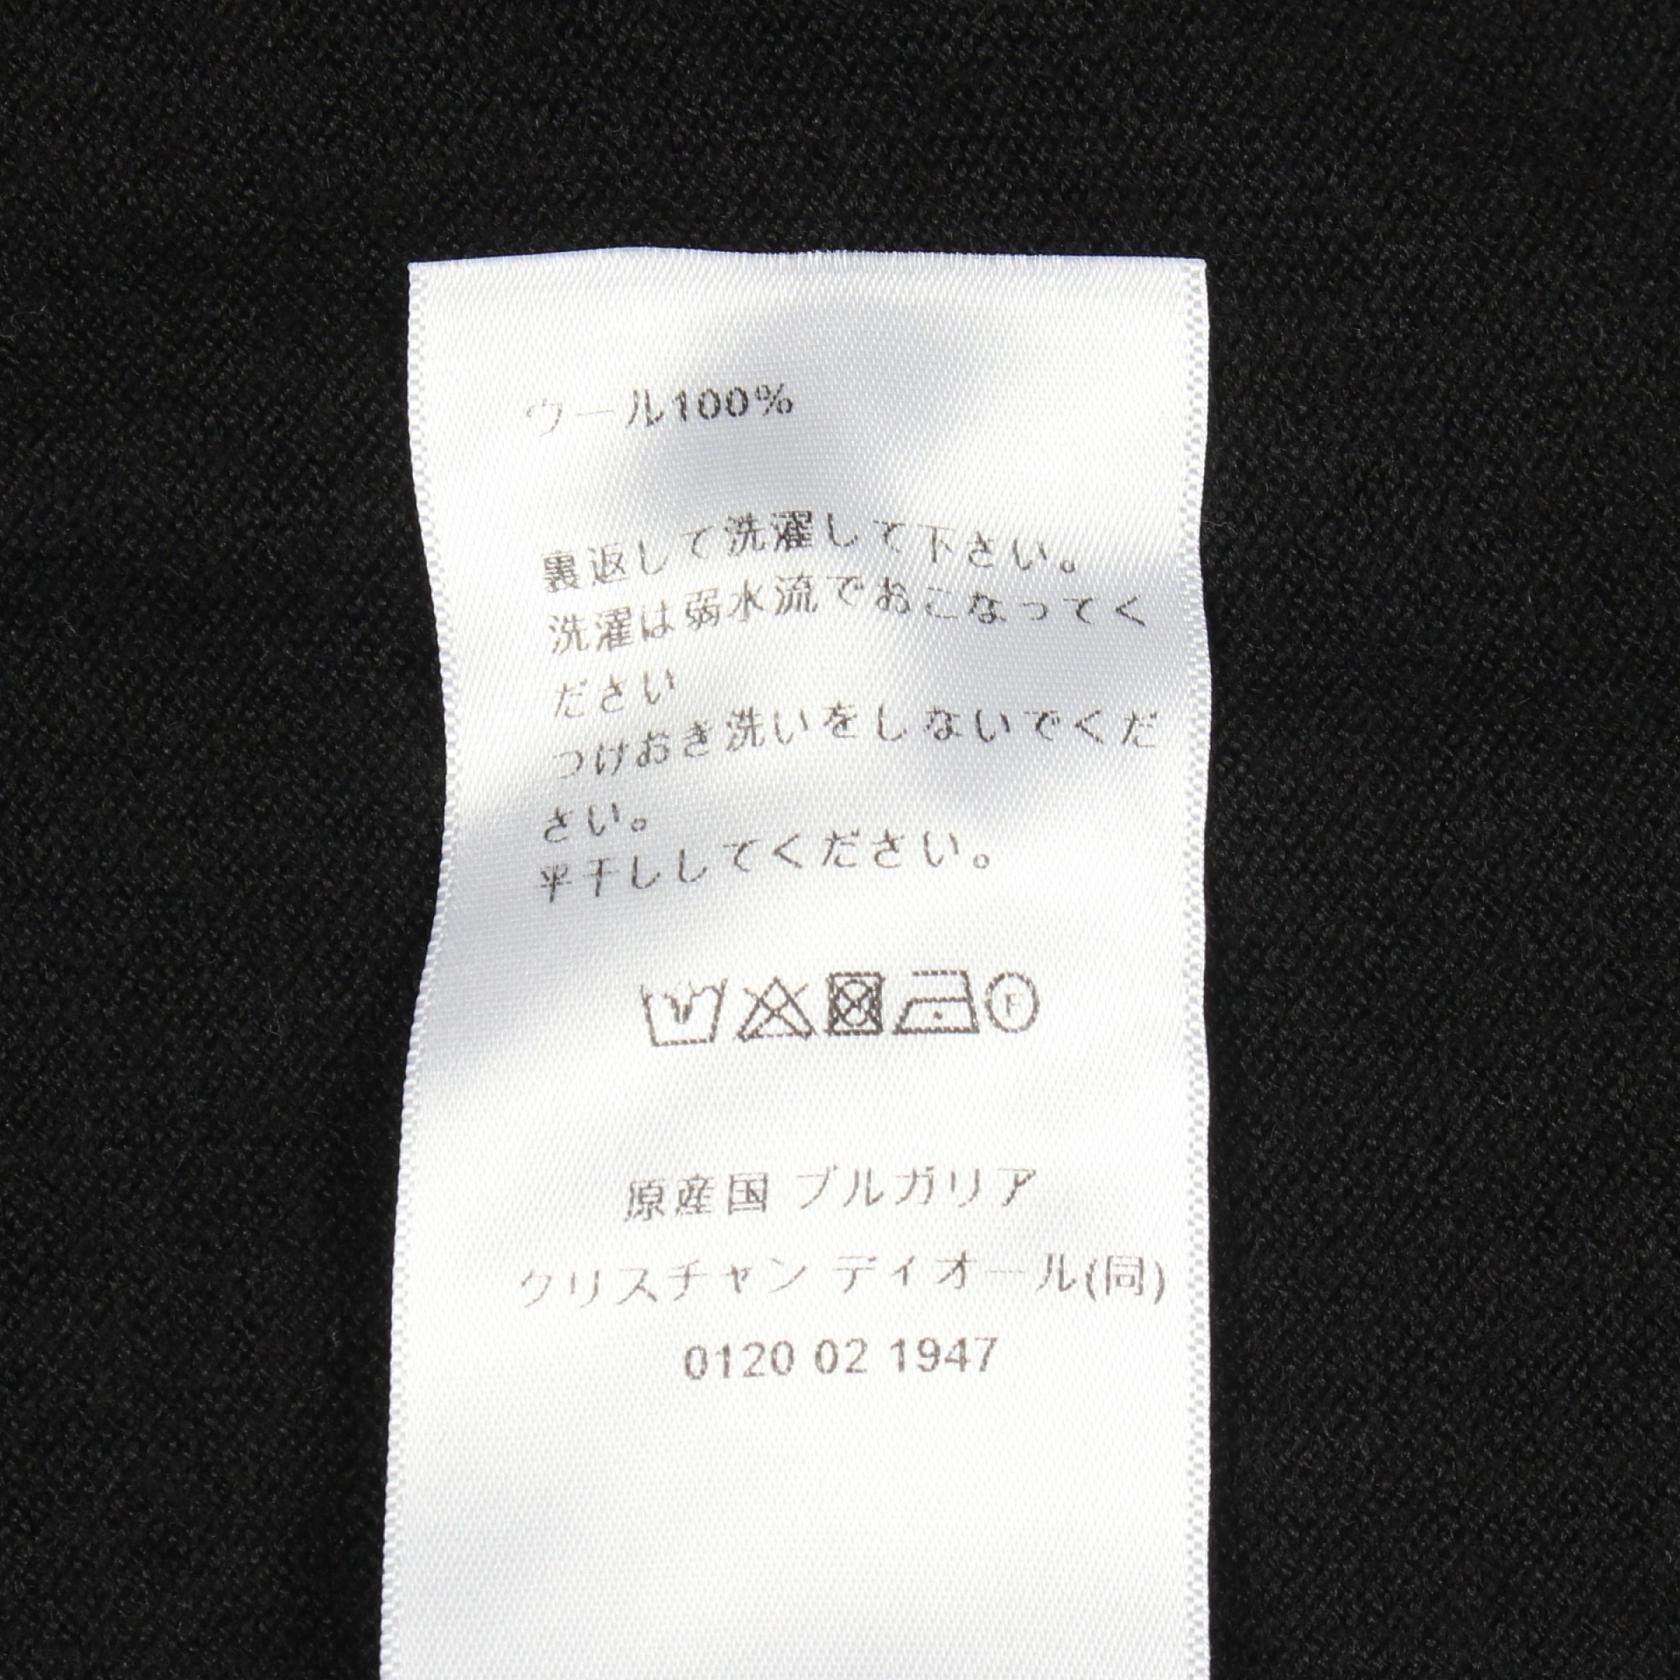 ウール100%
裏返して洗濯して下さい。
洗濯は弱水流でおこなってく
ださい
つけおき洗いをしないでくだ
さい。
平干ししてください。
F
原産国 ブルガリア
クリスチャン ディオール(同)
0120 02 1947